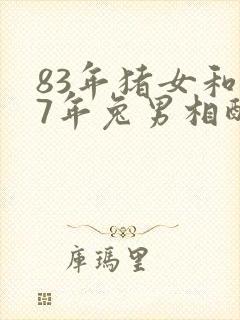 83年猪女和
7年兔男相配
库瑪里